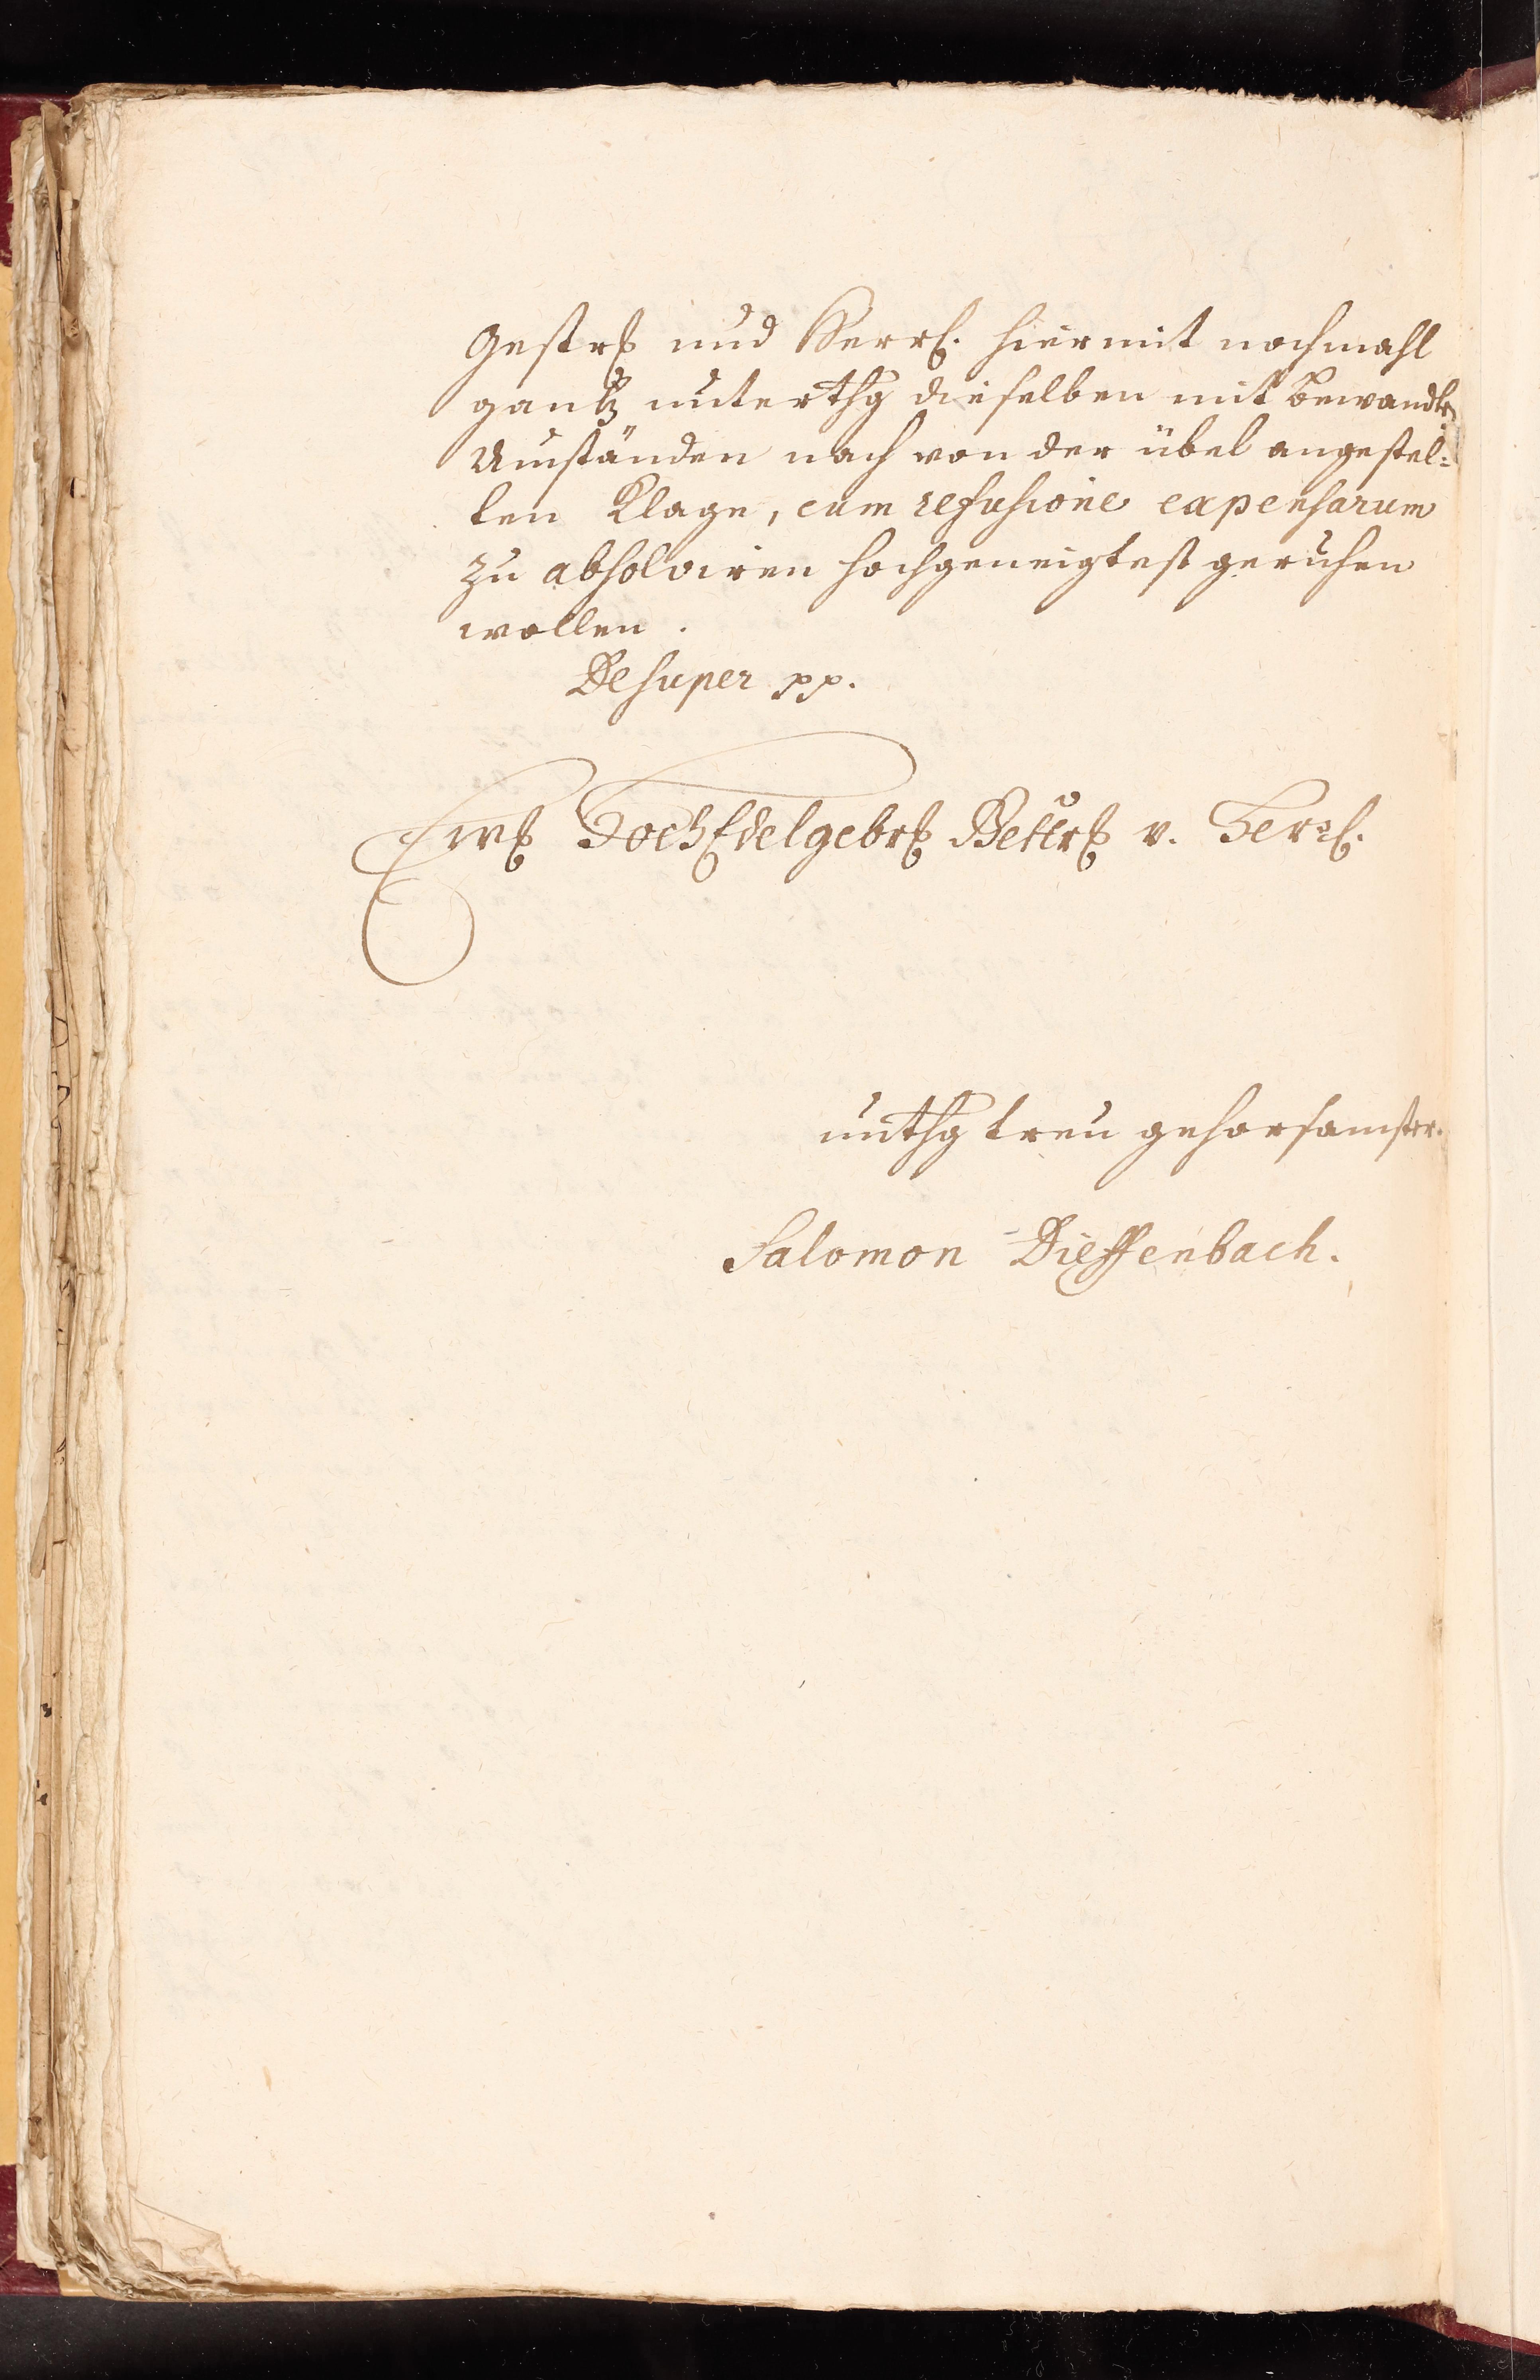 Gestr. und Herrl. hiermit nochmahl
gantz unterthg dieselben mit bewandten
Umständen nach von der übel angestel=
ten Klage, cum refusione expensarum
zu absolviren hochgeneigtest geruhen
wollen.
Desuper pp.
Ew. HochEdelgebr. v. Herrl.
unthg treu gehorsamster.
Salomon Dieffenbach.